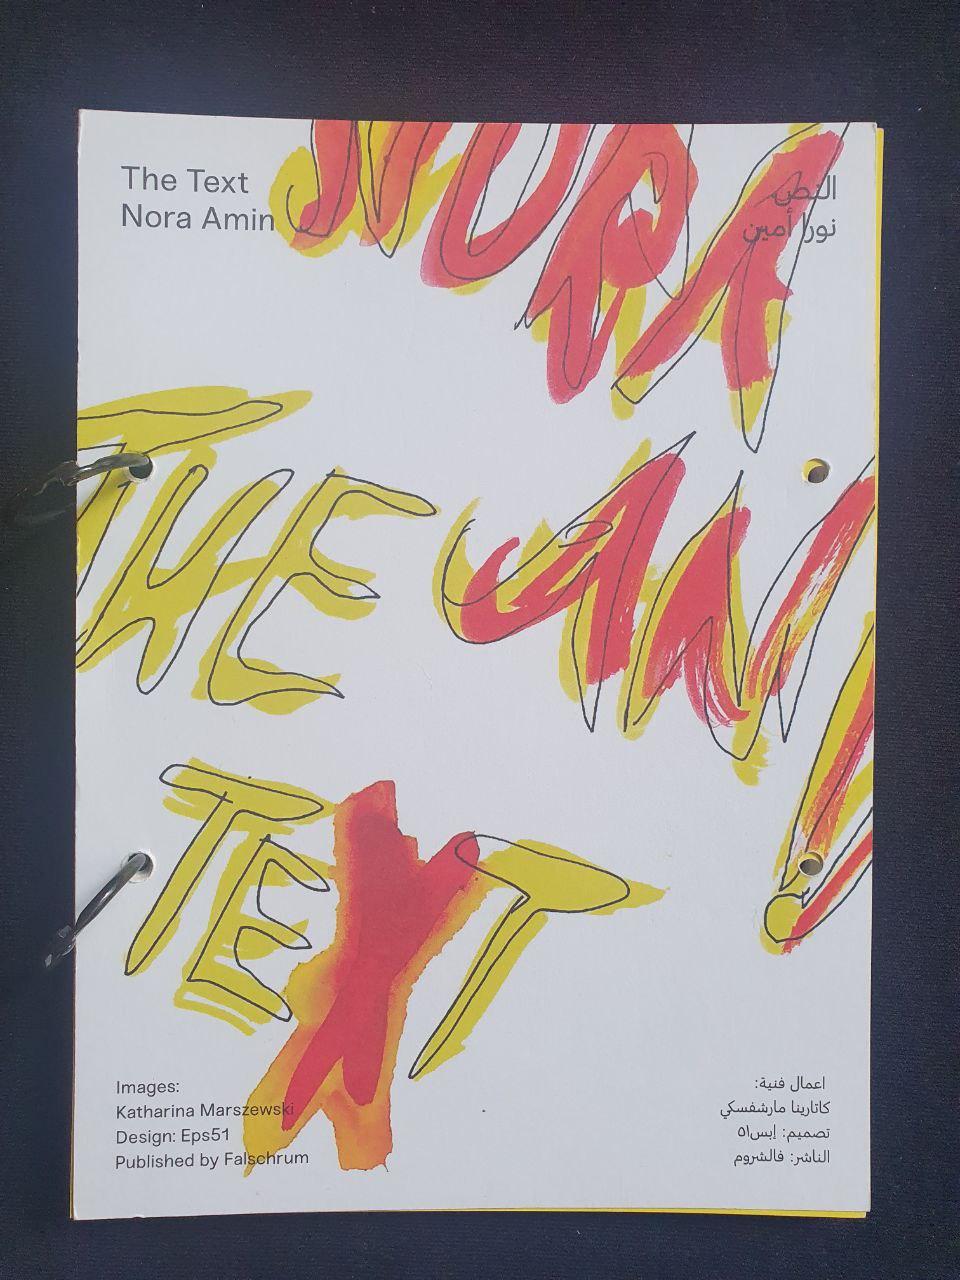 The Text
Nora Amin
النص
نورا أمين
NORA
THE
AMI
TEXT
Images:
Katharina Marszewski
Design: Eps51
Published by Falschrum
اعمال فنية:
كاتارينا مارشفسكي
تصميم: إبس٥١
الناشر: فالشروم